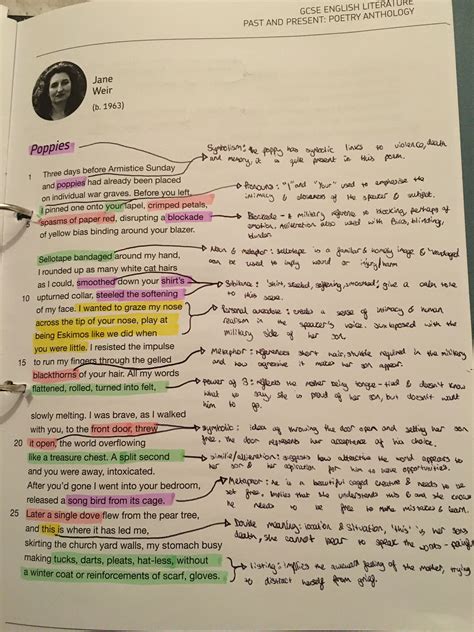 GCSE ENGLISH LITERATURE
PAST AND PRESENT: POETRY ANTHOLOGY
Jane
Weir
(b. 1963)
Poppies
Symbolism: the poppy has symbolic links to violence, death
and memory, it is quite present in this poem.
1 Three days before Armistice Sunday
and poppies had already been placed
on individual war graves. Before you left,
Pronouns: "I" and "Your" used to emphasise the
intimacy & closeness of the speaker & subject.
I pinned one onto your lapel, crimped petals,
5 spasms of paper red, disrupting a blockade
of yellow bias binding around your blazer.
Blockade - a military reference to blocking, perhaps of
emotion. Alliteration also used with bias, binding,
blazer.
Sellotape bandaged around my hand,
Noun & metaphor: sellotape is a familiar & homely image & 'bandaged'
can be used to imply wound or injury/harm
I rounded up as many white cat hairs
as I could, smoothed down your shirt's
10 upturned collar, steeled the softening
Sibilance: 'shirt, steeled, softening, smoothed'; give a calm tone
to this scene.
of my face. I wanted to graze my nose
across the tip of your nose, play at
being Eskimos like we did when
you were little. I resisted the impulse
Personal anecdote: creates a sense of intimacy & human
in the speaker's voice. Juxtaposed with the
military side of her son.
15 to run my fingers through the gelled
blackthorns of your hair. All my words
flattened, rolled, turned into felt,
Metaphor: references short hair, required in the military
and how aggressive it makes her son appear.
Power of 3: reflects the mother being tongue-tied & doesn't know
what to say. She is proud of her son, but doesn't want
him to go.
slowly melting. I was brave, as I walked
with you, to the front door, threw
20 it open, the world overflowing
Symbolic: idea of throwing the door open and setting her son
free. The door represents her acceptance of his choice.
like a treasure chest. A split second
and you were away, intoxicated.
simile/alliteration: suggests how attractive the world appears to
her son & her aspiration for him to have opportunities.
After you'd gone I went into your bedroom,
released a song bird from its cage.
Metaphor: He is a beautiful caged creature & needs to be
set free. Implies that she understands this and she knows
he needs to be free to make mistakes & learn.
25 Later a single dove flew from the pear tree,
and this is where it has led me,
skirting the church yard walls, my stomach busy
Double meaning: location & situation, 'this' is her sons
death, she cannot bear to speak the words -
making tucks, darts, pleats, hat-less, without
a winter coat or reinforcements of scarf, gloves.
Listing: implies the awkward feeling of the mother, trying
to distract herself from grief.